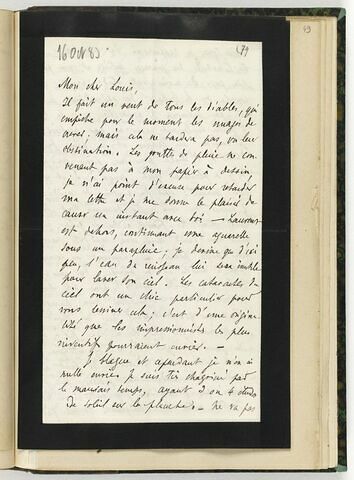 16 Oct 83.
79
49
Mon cher Louis,
Il fait un vent de tous les diables, qui
empêche pour le moment les nuages de
crever. mais cela ne tardera pas, vu leur
obstination. Les gouttes de pluie ne con-
venant pas à mon papier à dessin,
je n'ai point d'excuse pour retarder
ma lettre et je me donne le plaisir de
causer un instant avec toi —
est dehors, continuant une aquarelle
sous un parapluie. je devine que d'ici
peu, l'eau du ruisseau lui sera inutile
pour laver son ciel. Les cataractes du
ciel ont un chic particulier pour
vous terminer cela; c'est d'une origina-
lité que les impressionnistes les plus
pourraient envier. —
Je blague et cependant je n'en ai
nulle envie. Je suis très chagriné par
le mauvais temps, ayant 3 ou 4 études
de soleil sur la planche. — Ne va pas